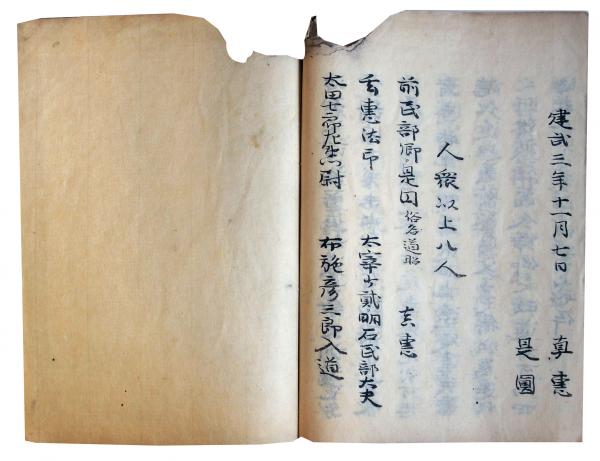 建武三年十一月七日 真惠
是圓
人衆以上八人
前民部卿 是囙 俗名道昭 真惠
玄惠法印 太宰少貳 明石民部大夫
太田七郎左衛門尉 布施彦三郎入道